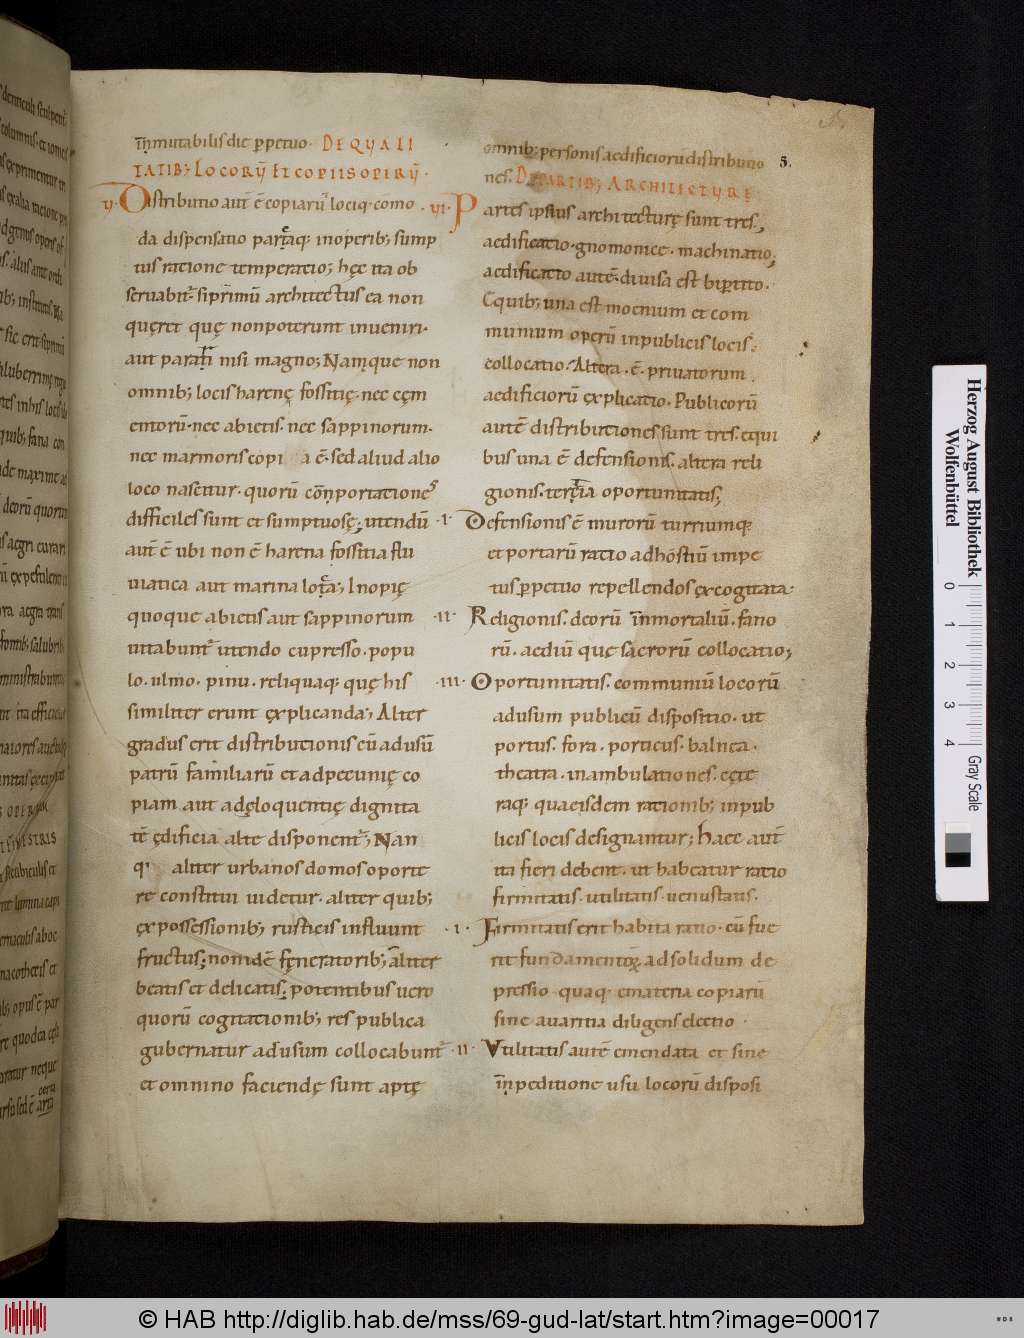 īnmutabilis dic ꝑpetuo· DE QVALI
TATIB; LOCORV̄ ET COPIIS OPERV̄·
v· Distributio aut̄ ē copiarū locíq· cōmo
da dispensatio parcaq· inoperib; sump
tus ratione temperatio; hęc ita ob
seruabit̄· siprimū architectus ea non
quęret quę nonpoterunt inueniri·
aut parari nisi magno; Namque non
omnib; locis harenę fossitię· nec cęm
entorū· nec abietis· nec sappinorum·
nec marmoris copi a ē· sed aliud alio
loco nascitur· quorū cōnportationes
difficiles sunt et sumptuosę; utendū
aut̄ ē ubi non ē harena fossitia flu
uiatica aut marina lota; Inopię
quoque abietis aut sappinorum
uitabunt̄ utendo cupresso· popu
lo· ulmo· pinu· reliquaq· quę his
similiter erunt ęxplicanda; Alter
gradus erit distributionis cū adusū
patrū familiarū et adpecunię co
piam aut adęloquentię dignita
tē ędificia alte disponent̄; Nan
q· aliter urbanos domos oporte
re constitui uidetur· aliter quib;
ęx possessionib; rusticis influunt
fructus; non idē fęneratorib; aliter
beatis et delicatis; potentibus uero
quorū cogitationib; res publica
gubernatur adusum collocabunt̄
et omnino faciendę sunt aptę
omnib; personis aedificiorū distributio
nes· DE PARTIB; ARCHITECTVRĘ
5.
vi· Partes ipsius architecturę sunt tres;
aedificatio· gnomonice· machinatio;
aedificatio autē· diuisa est biꝑtito·
Equib; una est moenium et com
munium operū inpublicis locis·
collocatio· Altera· ē· priuatorum
aedificiorū ęxplicatio· Publicorū
autē distributiones sunt tres· equi
bus una ē defensionis· altera reli
gionis· tercia oportunitatis;
·I· Defensionis ē murorū turriumq;
et portarū ratio adhostiū impe
tus ꝑpetuo repellendos ęxcogitata·
·II· Religionis· deorū īnmortaliū· fano
rū· aediū quę sacrorū collocatio;
·III· Oportunitatis· communiū locorū
adusum publicū dispositio· ut
portus· fora· porticus· balnea·
theatra· inambulationes· cęte
raq; quaeisdem rationib; inpub
licis locis designantur; haec aut̄
ita fieri debent· ut habeatur ratio
firmitatis· utilitatis· uenustatis·
·I· Firmitatis erit habita ratio· cū fue
rit fundamentoꝝ adsolidum de
pressio· quaq· emateria copiarū
sine auaritia diligens electio·
·II· Vtilitatis autē emendata et sine
īnpeditione usu locorū disposi
Herzog August Bibliothek
Wolfenbüttel
0 1 2 3 4
Gray Scale
© HAB http://diglib.hab.de/mss/69-gud-lat/start.htm?image=00017